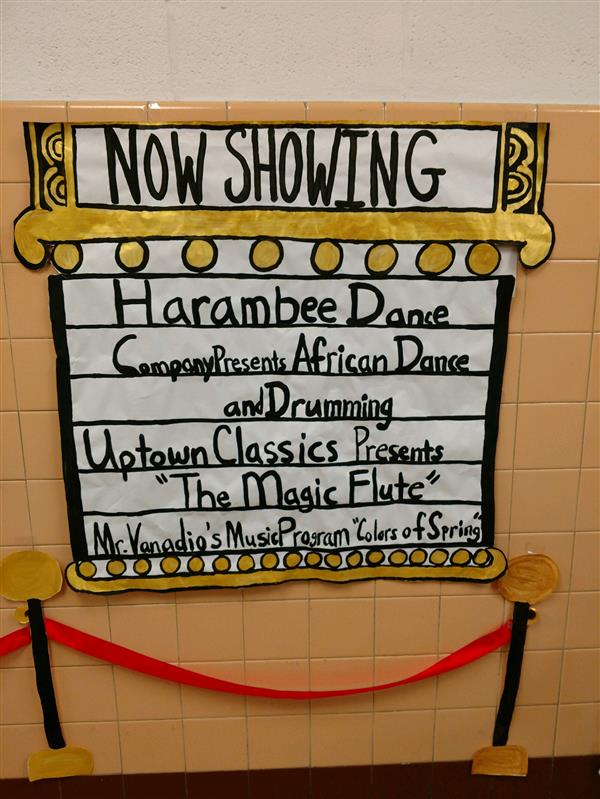 NOW SHOWING
Harambee Dance
Company Presents African Dance
and Drumming
Uptown Classics Presents
"The Magic Flute"
Mr. Vanadio's Music Program "Colors of Spring"